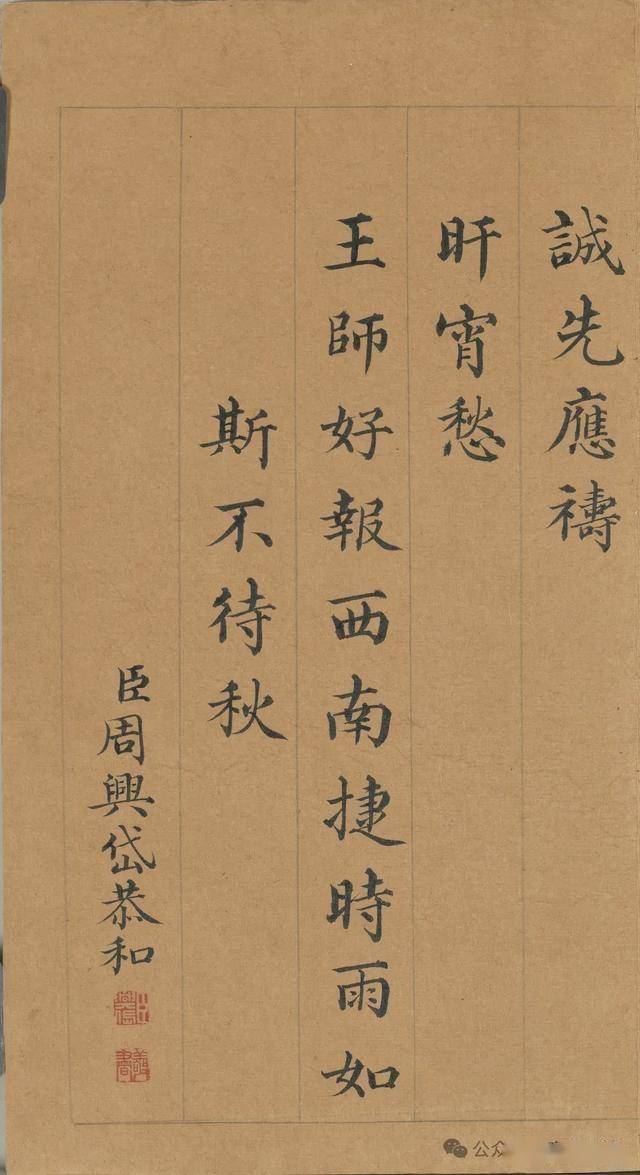 誠先應禱
旰宵愁
王師好報西南捷時雨如
斯不待秋
臣周興岱恭和
公众